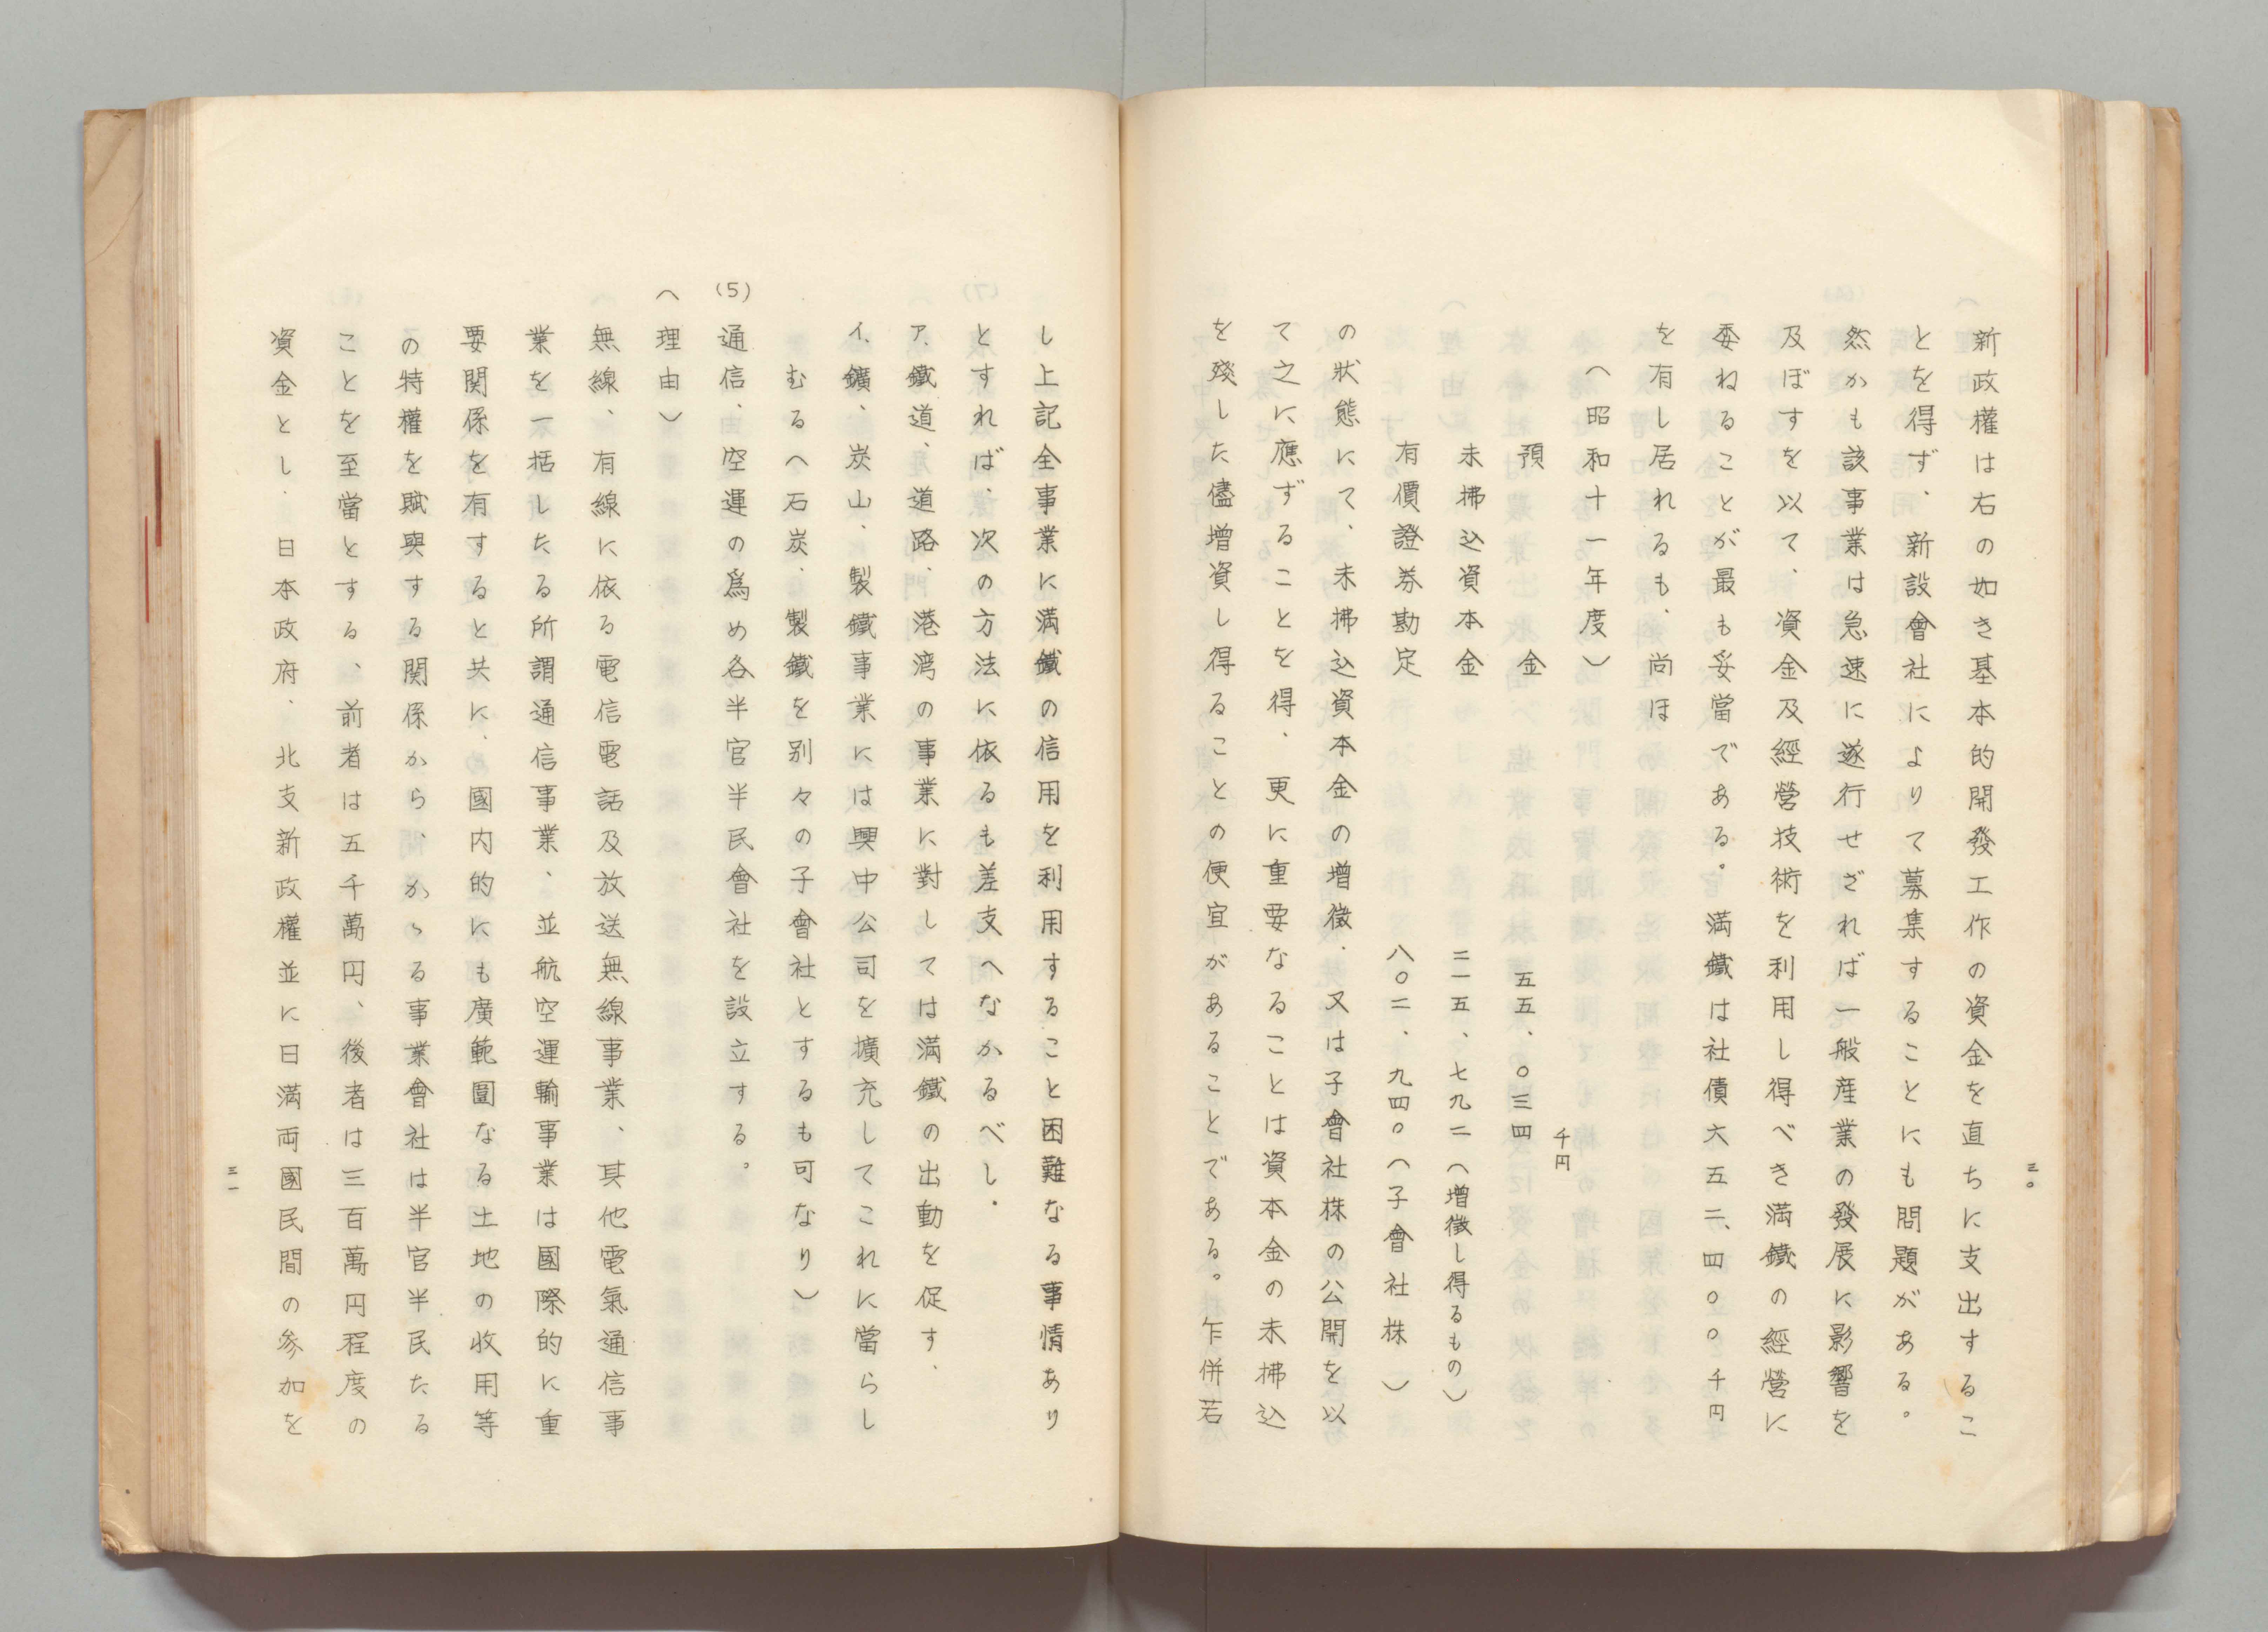 三〇
新政權は右の如き基本的開發工作の資金を直ちに支出するこ
とを得ず、新設會社によりて募集することにも問題がある。
然かも該事業は急速に遂行せざれば一般産業の發展に影響を
及ぼすを以て、資金及經營技術を利用し得べき満鐵の經營に
委ねることが最も妥當である。満鐵は社債六五二、四〇〇千円
を有し居れるも、尚ほ
(昭和十一年度)
千円
預金 五五、〇三四
未拂込資本金 二一五、七九二(増徴し得るもの)
有價證券勘定 八〇二、九四〇(子會社株)
の狀態にて、未拂込資本金の増徴、又は子會社株の公開を以
て之に應ずることを得、更に重要なることは資本金の未拂込
を殘した儘増資し得ることの便宜があることである。乍併若
し上記全事業に満鐵の信用を利用すること困難なる事情あり
とすれば、次の方法に依るも差支へなかるべし.
ア、鐵道、道路、港湾の事業に對しては満鐵の出動を促す、
イ、鑛、炭山、製鐵事業には興中公司を擴充してこれに當らし
むる(石炭、製鐵を別々の子會社とするも可なり)
(5) 通信、空運の爲め各半官半民會社を設立する。
(理由)
無線、有線に依る電信電話及放送無線事業、其他電氣通信事
業を一括したる所謂通信事業、並航空運輸事業は國際的に重
要関係を有すると共に、國内的にも廣範圍なる土地の收用等
の特權を賦與する関係から、かゝる事業會社は半官半民たる
ことを至當とする、前者は五千萬円、後者は三百萬円程度の
資金とし、日本政府、北支新政權並に日満両國民間の參加を
三一